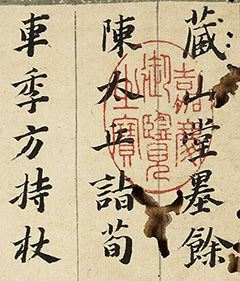 藏山
墨餘
陳太丘詣荀
車季方持杖
嘉慶御覽之寶